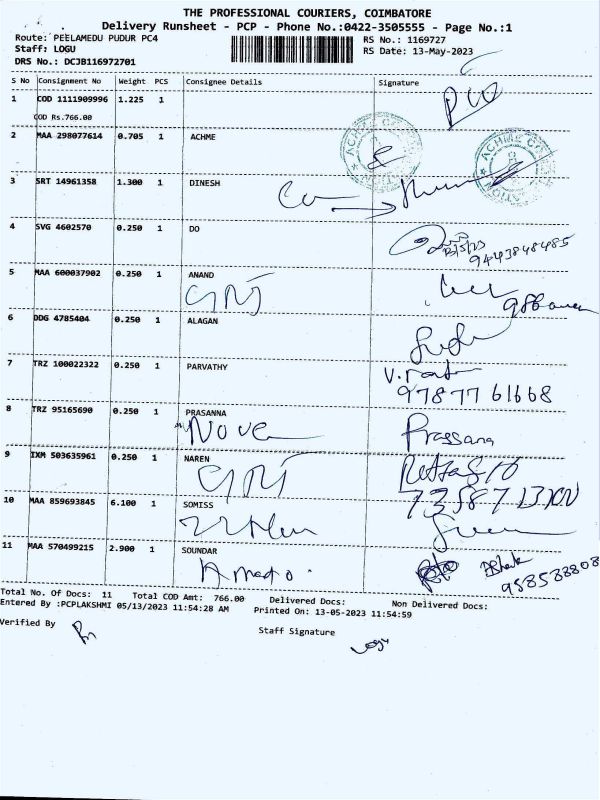 THE PROFESSIONAL COURIERS, COIMBATORE
Delivery Runsheet - PCP - Phone No.:0422-3505555 - Page No.:1
Route: PEELAMEDU PUDUR PC4
RS No.: 1169727
Staff: LOGU
RS Date: 13-May-2023
DRS No.: DCJB116972701
S No Consignment No Weight PCS Consignee Details Signature
1 COD 1111909996 1.225 1
COD Rs.766.00
2 MAA 298077614 0.705 1 ACHME
3 SRT 14961358 1.300 1 DINESH
4 SVG 4602570 0.250 1 DO
13/5/23
9443848485
5 MAA 600037902 0.250 1 ANAND
6 DDG 4785404 0.250 1 ALAGAN
7 TRZ 100022322 0.250 1 PARVATHY
97877 61668
8 TRZ 95165690 0.250 1 PRASANNA
Nove Prassana
9 IXM 503635961 0.250 1 NAREN
10 MAA 859693845 6.100 1 SOMISS
11 MAA 570499215 2.900 1 SOUNDAR
958538808
Total No. Of Docs: 11 Total COD Amt: 766.00 Delivered Docs: Non Delivered Docs:
Entered By :PCPLAKSHMI 05/13/2023 11:54:28 AM Printed On: 13-05-2023 11:54:59
Verified By
Staff Signature
Logu